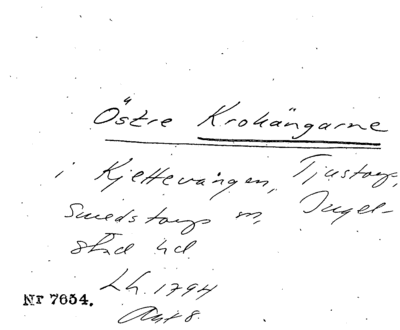 Östre Krokängarne
i Kjettevången, Tjustorp,
Smedstorps sn, Ingel-
stad hd
Lh. 1794
Akt 8.
Nr 7654.